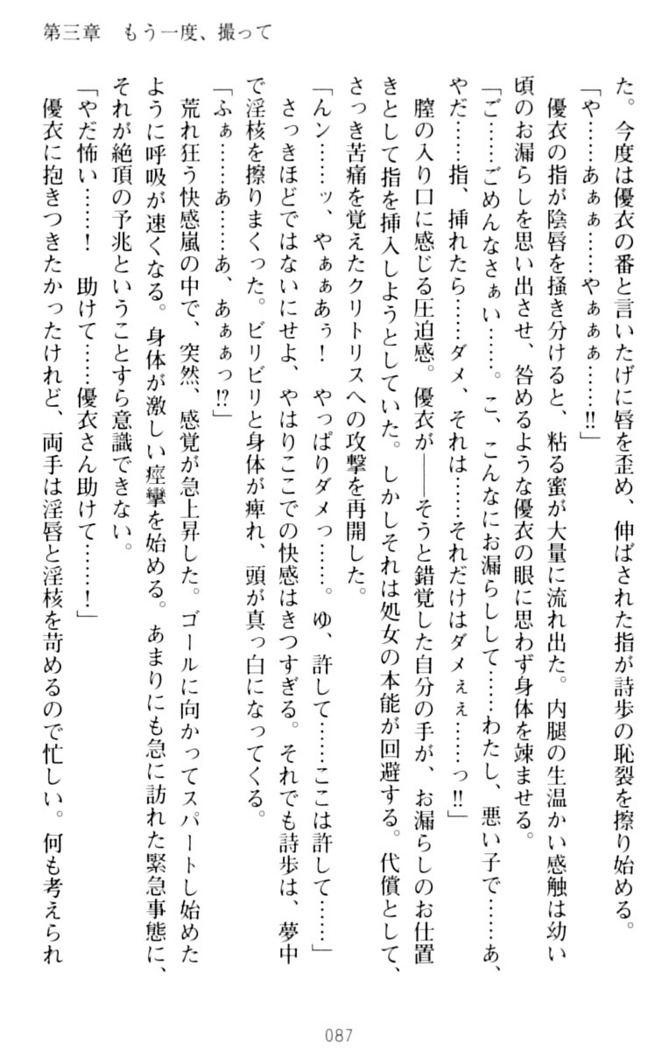 第三章　もう一度、撮って
た。今度は優衣の番と言いたげに唇を歪め、伸ばされた指が詩歩の恥裂を擦り始める。
「や……あぁぁ……やぁぁぁ……‼」
優衣の指が陰唇を掻き分けると、粘る蜜が大量に流れ出た。内腿の生温かい感触は幼い
頃のお漏らしを思い出させ、咎めるような優衣の眼に思わず身体を竦ませる。
「ご……ごめんなさぁい……。こ、こんなにお漏らしして……わたし、悪い子で……あ、
やだ……指、挿れたら……ダメ、それは……それだけはダメぇぇ……っ‼」
膣の入り口に感じる圧迫感。優衣が――そうと錯覚した自分の手が、お漏らしのお仕置
きとして指を挿入しようとしていた。しかしそれは処女の本能が回避する。代償として、
さっき苦痛を覚えたクリトリスへの攻撃を再開した。
「んン……ッ、やぁぁあぅ！　やっぱりダメっ……。ゆ、許して……ここは許して……」
さっきほどではないにせよ、やはりここでの快感はきつすぎる。それでも詩歩は、夢中
で淫核を擦りまくった。ビリビリと身体が痺れ、頭が真っ白になってくる。
「ふぁ……あ……あ、あぁぁっ⁉」
荒れ狂う快感嵐の中で、突然、感覚が急上昇した。ゴールに向かってスパートし始めた
ように呼吸が速くなる。身体が激しい痙攣を始める。あまりにも急に訪れた緊急事態に、
それが絶頂の予兆ということすら意識できない。
「やだ怖い……！　助けて……優衣さん助けて……！」
優衣に抱きつきたかったけれど、両手は淫唇と淫核を苛めるので忙しい。何も考えられ
087